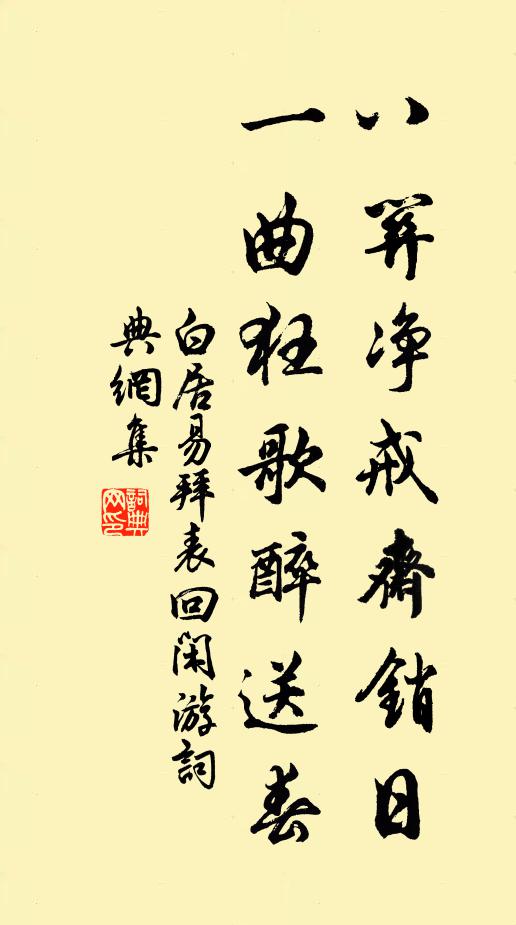 八关净戒齋銷日
一曲狂歌醉送春
白居易拜表回閑游詞
典網集
詞典网印